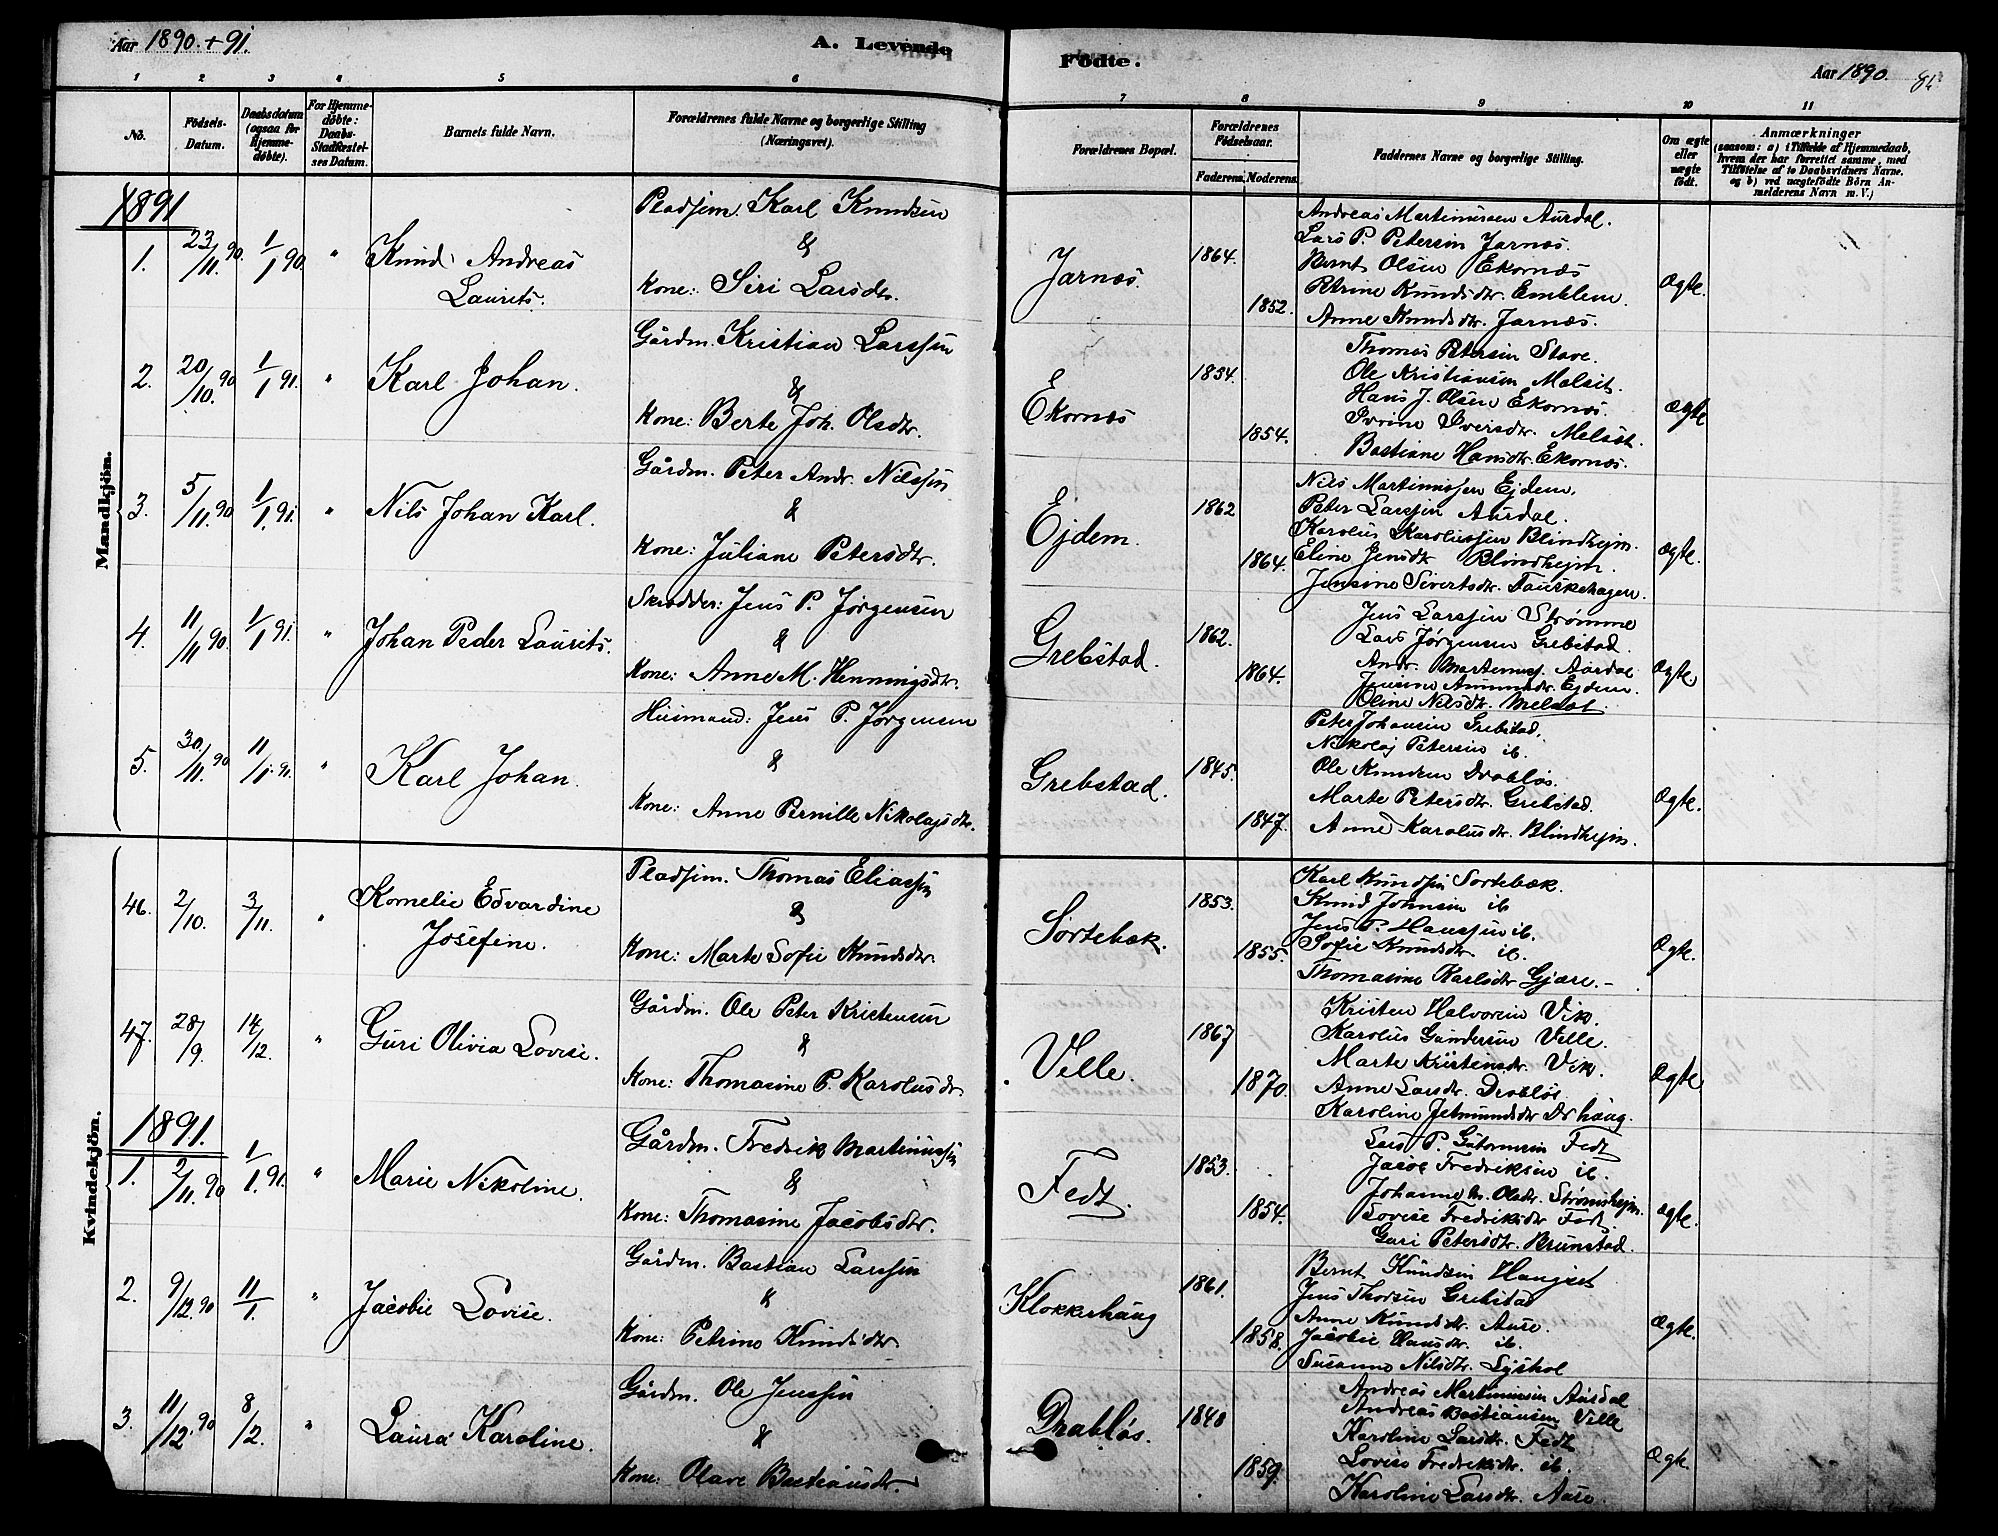 Aar 1890 + 91.
A. Levende
Födte.
Aar 1890.
1 2 3 4 5 6 7 8 9 10 11
No.
Födsels-Datum.
Daabsdatum (ogsaa for Hjemmedøbte).
For Hjemmedøbte: Daabs-Stadfæstelses Datum.
Barnets fulde Navn.
Forældrenes fulde Navne og borgerlige Stilling (Næringsvei).
Forældrenes Bopæl.
Forældrenes Födselsaar.
Faderens. Moderens.
Faddernes Navne og borgerlige Stilling.
Om ægte eller uægte födt.
Anmærkninger
(saasom: a) i Tilfælde af Hjemmedaab, hvem der har forrettet samme, med Tilföielse af to Daabsvidners Navne, og b) ved uægtefödte Börn Anmelderens Navn m. V.)
Mandkjön.
1891
1. 23/11 90. 1/1 90 " Knud Andreas Laurits.
Pladsm. Karl Knudsen
&
Kone: Siri Larsdtr.
Jarnæs. 1864. 1852.
Andreas Martinussen Aurdal.
Lars P. Petersen Jarnæs.
Bernt Olsen Ekornæs
Petrine Knudsdtr. Emblem.
Anne Knudsdtr. Jarnæs.
Ægte.
2. 20/10 90 1/1 91. " Karl Johan.
Gårdm. Kristian Larssen
&
Kone: Berte Joh. Olsdtr.
Ekornæs 1854. 1854.
Thomas Petersen Stave.
Ole Kristiansen Melsæt.
Hans J. Olsen Ekornæs.
Iversdtr. Melsæt.
Bastiane Hansdtr. Ekornæs.
Ægte
3. 5/11 90 1/1 91. " Nils Johan Karl.
Gårdm. Peter Andr. Nilssen
&
Kone: Juliane Petersdtr.
Ejdem. 1862 1864.
Nils Martinussen Ejdem.
Peter Larssen Aurdal.
Karolus Karolussen Blindhejm.
Eline Jensdtr Blindhejm.
Jensine Sivertsdtr. Tauskehagen.
Ægte.
4. 11/11 90. 1/1 91. " Johan Peder Laurits.
Skrædder: Jens P. Jørgensen
&
Kone: Anne M. Henningsdtr.
Grebstad. 1862. 1864.
Jens Larssen Strømme
Lars Jørgensen Grebstad.
Andr. Martinuss. Aurdal
Jensine Ejdem.
Oline Nilsdtr. Melsæt.
Ægte
5. 30/11 90 11/1 91. " Karl Johan.
Husmand: Jens P. Jørgensen
&
Kone: Anne Pernille Nikolajsdtr.
Grebstad. 1845. 1847.
Peter Johansen Grebstad.
Nikolaj Petersen ib.
Ole Knudsen Drabløs.
Marte Petersdtr. Grebstad.
Anne Karolusdtr. Blindhejm.
Ægte.
Kvindekjön.
46. 2/10. 3/11. " Kornelie Edvardine Josefine.
Pladsm. Thomas Eliassen
&
Kone: Marte Sofie Knudsdtr.
Sortebæk. 1853. 1855.
Karl Knudsen Sortebæk.
Knud Johnsen ib
Jens P. Hanssen ib.
Sofie Knudsdtr ib.
Thomasine Karlsdtr Gjære. -
Ægte.
47. 28/9. 14/12. " Guri Olivia Lovise.
Gårdm. Ole Peter Kristensen
&
Kone: Thomasine P. Karolusdtr
Velle. 1867 1870.
Kristen Halvorsen Vik.
Karolus Gundersen Velle.
Marte Kristensdtr. Vik.
Anne Larsdtr. Drabløs
Karoline Jetmundsdtr
Ægte
1891.
1. 2/11 90 1/1 91. " Marie Nikoline.
Gårdm. Fredrik Martinussen
&
Kone: Thomasine Jacobsdtr.
Fedt. 1853. 1854.
Lars P. Guttormsen Fedt
Jacob Fredriksen ib.
Johanne M. Olsdtr. Strømshejm.
Lovise Fredriksdtr Fedt.
Guri Petersdtr. Brunstad.
Ægte.
2. 9/12 90 11/1 " Jacobie Lovise.
Gårdm. Bastian Larssen
&
Kone: Petrine Knudsdtr.
Klokkerhaug 1861. 1858.
Bernt Knudsen Haugset
Jens Thorsen Grebstad
Anne Knudsdtr. Aure.
Jacobie Hansdtr. ib.
Susanne Nilsdtr. Lyshol
Ægte.
3. 11/12 90 8/2. " Laura Karoline.
Gårdm. Ole Jenssen
&
Kone: Olave Bastiansdtr.
Drabløs. 1848 1859.
Andreas Martinussen Aurdal
Andreas Bastiansen Velle
Karoline Larsdtr. Fedt
Lovise Fredriksdtr. ib.
Karoline Larsdtr. Aure.
Ægte.